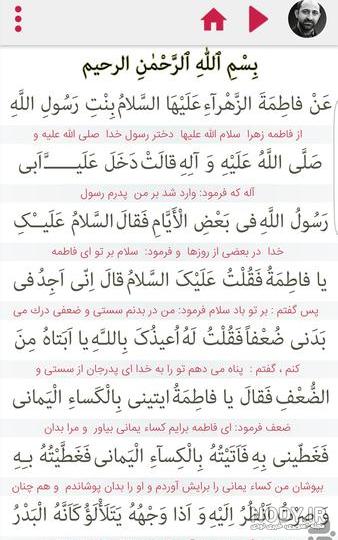 بِسْمِ ٱللَّٰهِ ٱلرَّحْمَٰنِ الرحیم
عَنْ فاطِمَةَ الزَّهْرآءِ عَلَیْهَا السَّلامُ بِنْتِ رَسُولِ اللَّهِ
از فاطمه زهرا سلام الله علیها دختر رسول خدا صلی الله علیه و
صَلَّى اللَّهُ عَلَیْهِ وَ آلِهِ قالَتْ دَخَلَ عَلَیَّ اَبى
آله که فرمود: وارد شد بر من پدرم رسول
رَسُولُ اللَّهِ فى بَعْضِ الْأَیَّامِ فَقالَ السَّلامُ عَلَیْکِ
خدا در بعضی از روزها و فرمود: سلام بر تو ای فاطمه
یا فاطِمَةُ فَقُلْتُ عَلَیْکَ السَّلامُ قالَ اِنّى اَجِدُ فى
پس گفتم : بر تو باد سلام فرمود: من در بدنم سستی و ضعفی درك می
بَدَنى ضُعْفاً فَقُلْتُ لَهُ اُعیذُکَ بِاللهِ یا اَبَتاهُ مِنَ
کنم ، گفتم : پناه می دهم تو را به خدا ای پدرجان از سستی و
الضُّعْفِ فَقالَ یا فاطِمَةُ ایتینى بِالْکَساءِ الْیَمانى
ضعف فرمود: ای فاطمه برایم کساء یمانی بیاور و مرا بدان
فَغَطّینى بِهِ فَاَتَیْتُهُ بِالْکِسآءِ الْیَمانى فَغَطَّیْتُهُ بِهِ
بپوشان من کساء یمانی را برایش آوردم و او را بدان پوشاندم و هم چنان
وَ صِرْتُ اَنْظُرُ اِلَیْهِ وَ اذا وَجْهُهُ یَتَلَأْلَؤُ کَاَنَّهُ الْبَدْرُ